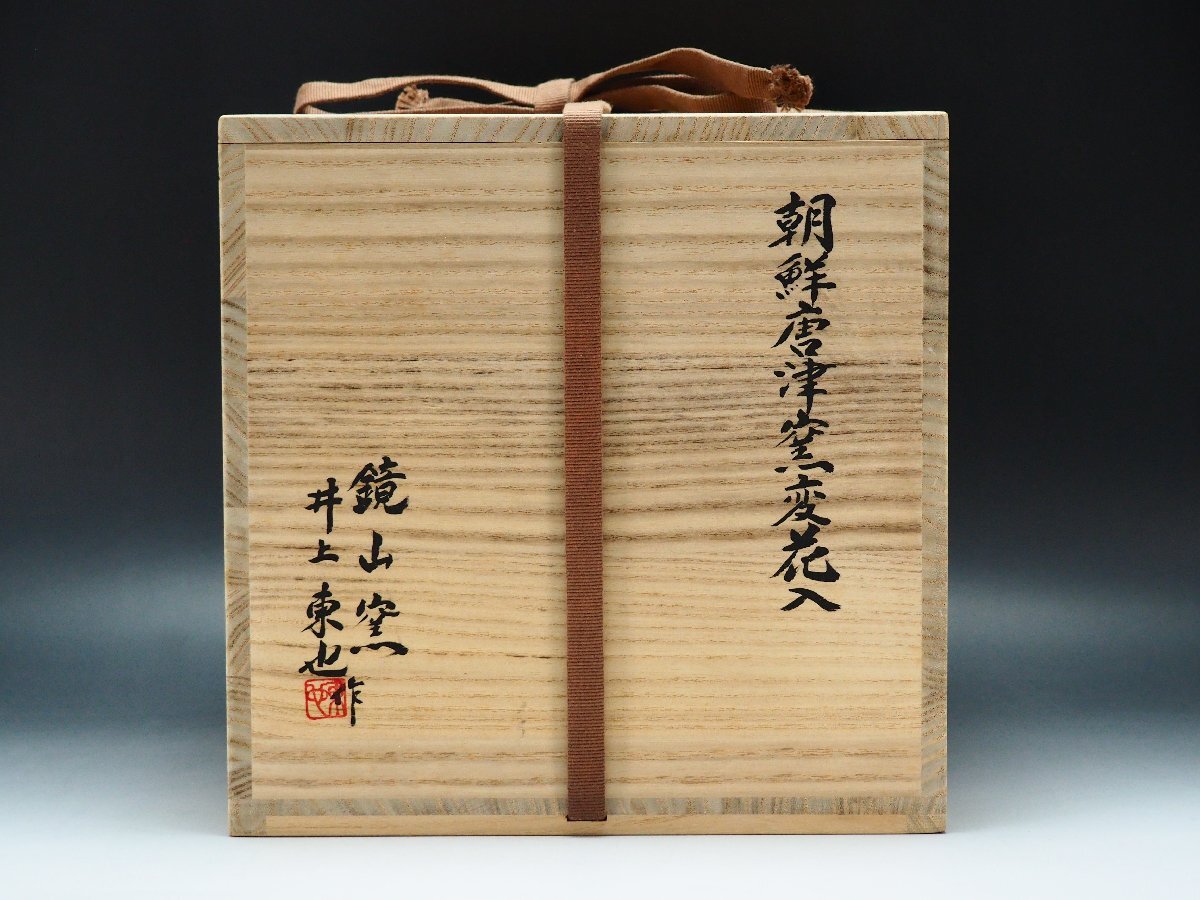 朝鮮唐津窯変花入
鏡山窯
井上東也作